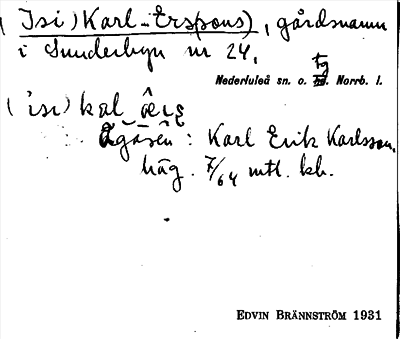 ( Isi) Karl-Ers(sons), gårdsnamn
i Sunderbyn nr 24.
Nederluleå sn. o. tg. Norrb. l.
( i̇sı) kal
Ägaren : Karl Erik Karlsson,
häg. 7/64 mtl. kb.
EDVIN BRÄNNSTRÖM 1931